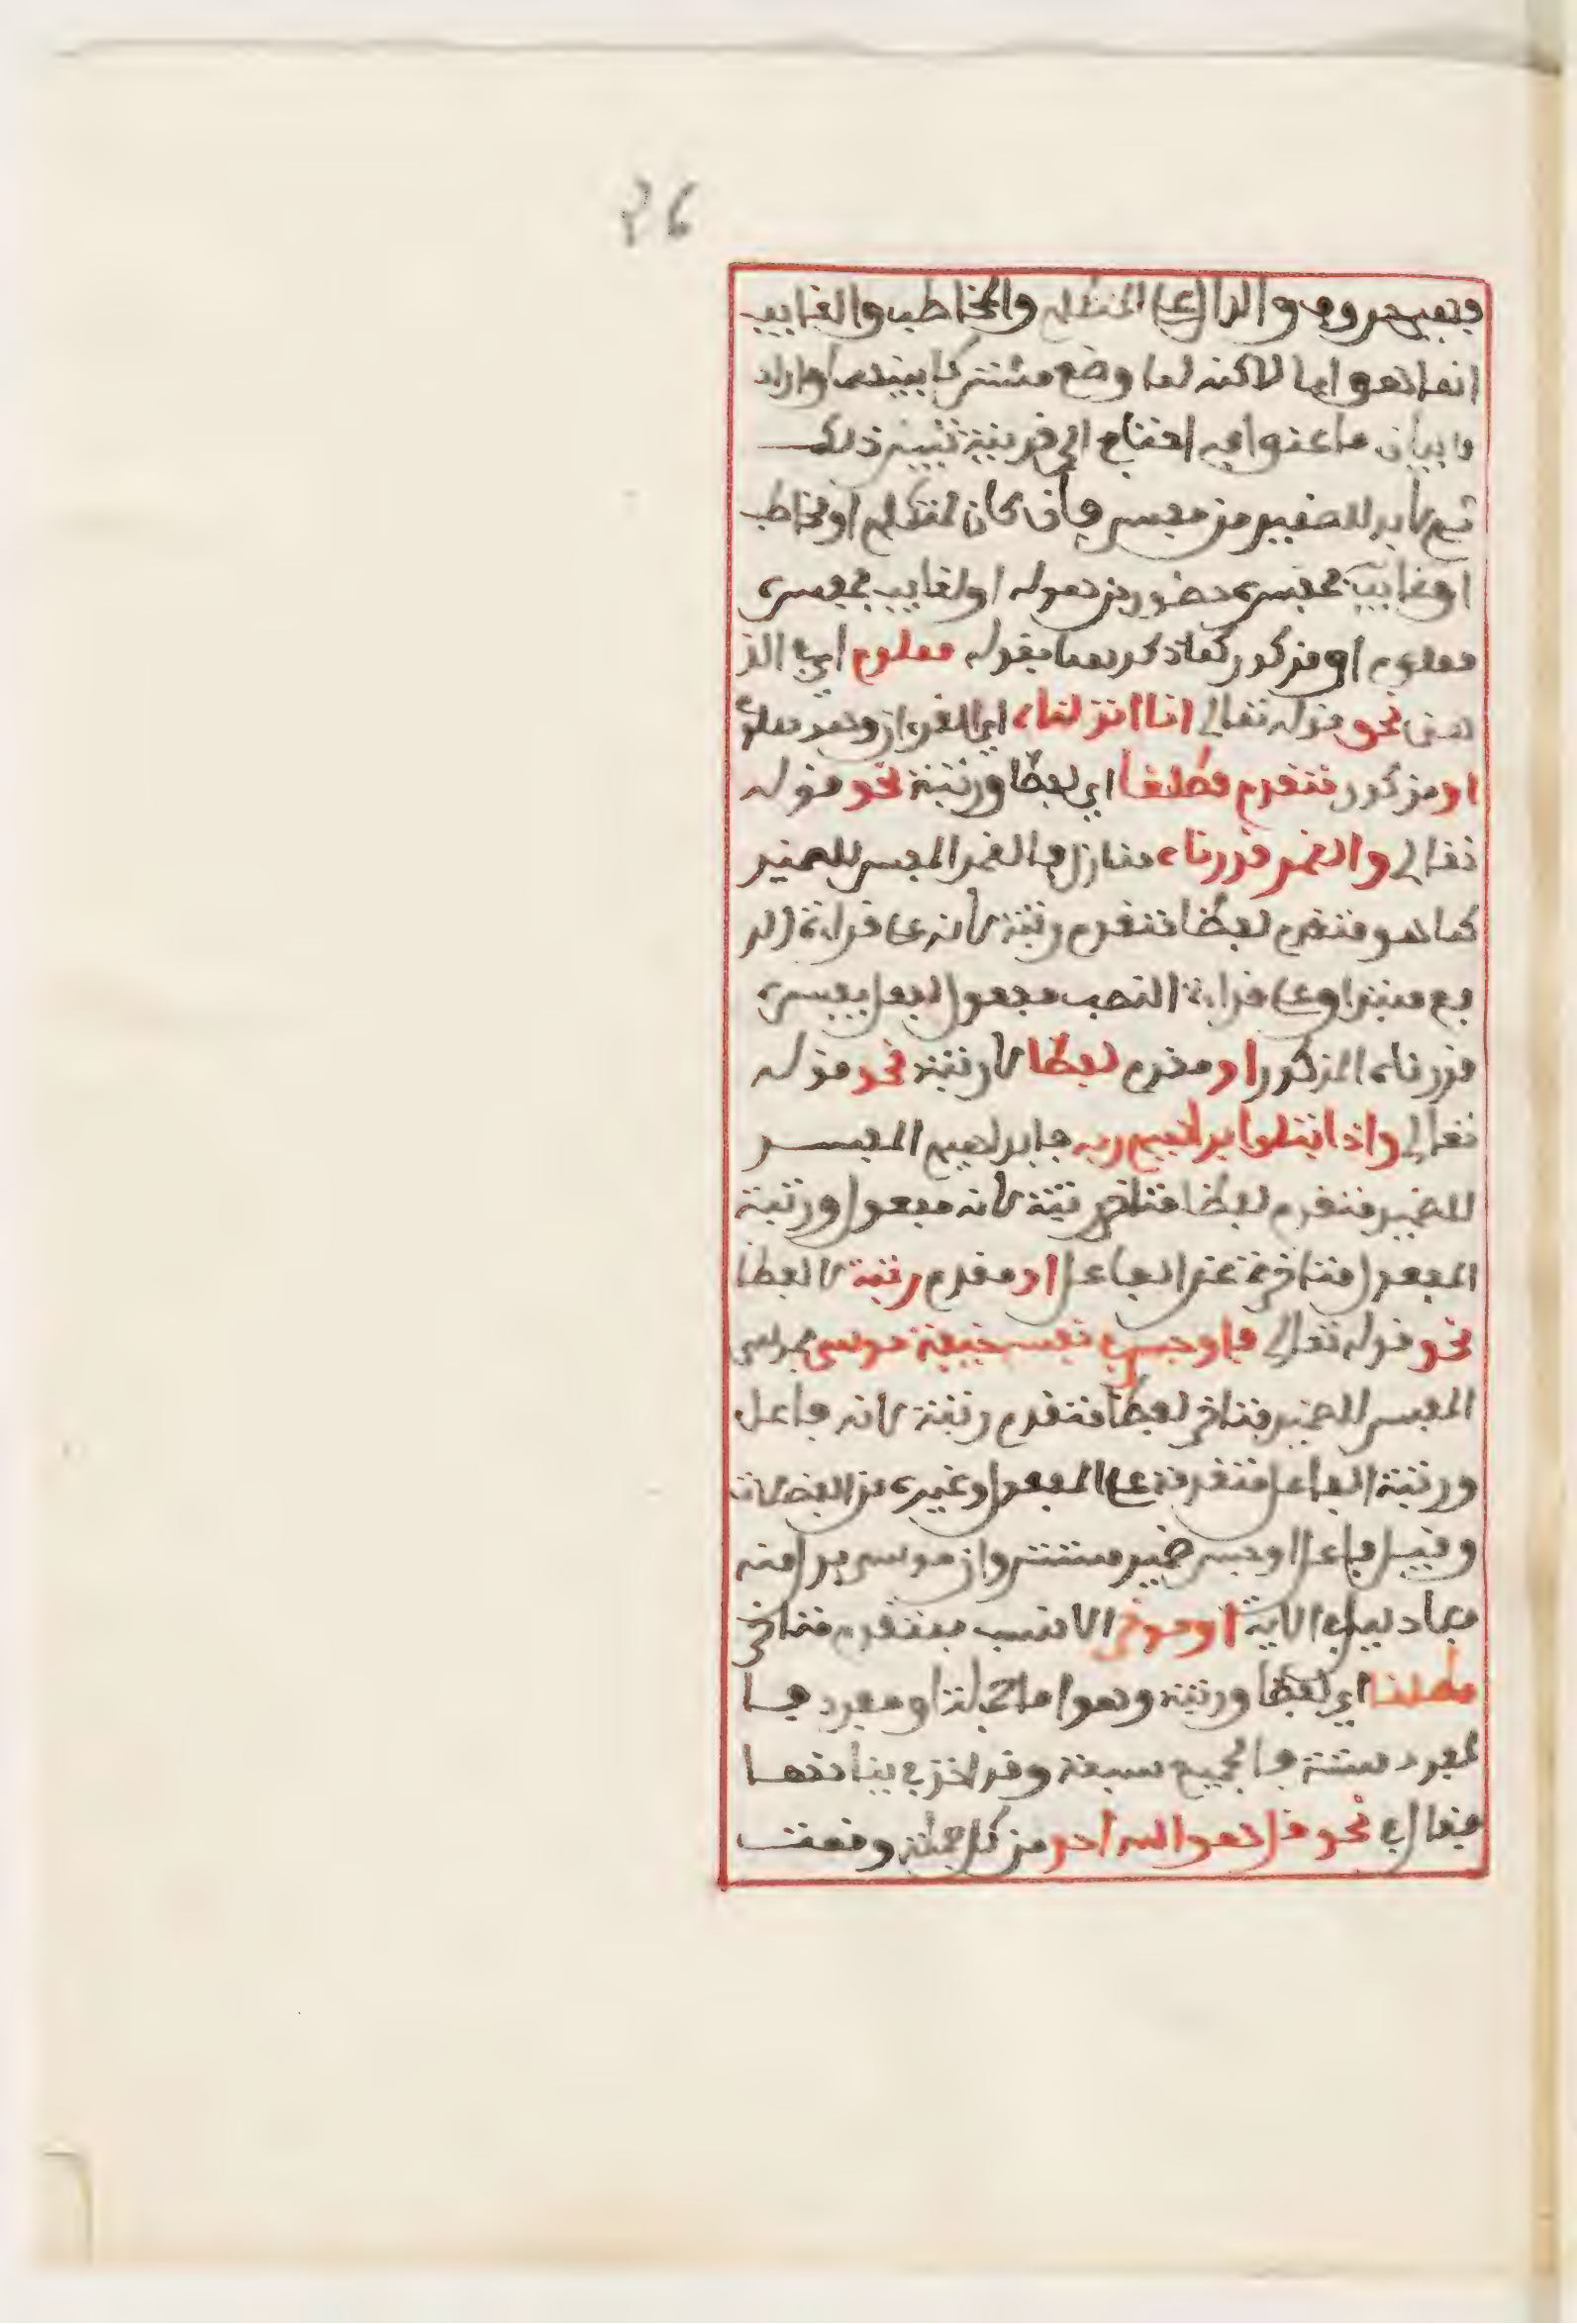 26
فبقي حروف والدال على المتكلم والمخاطب والغايب
انما هو ايا لاكنه لما وضع مشتركا بينهما وارادوا
بيان ما عنوا به احتاج الى قرينة تبين ذلك
ثم لابد للضمير من مفسر فان كان لمتكلم او مخاطب
او غايب فمفسره حضور من هو له او لغايب فمفسره
معلوم او مذكور كما ذكرهما بقوله معلوم اي في الذ
هن نحو قوله تعالى انا انزلناه اي القرءان
او مذكور متقدم مطلقا اي لفظا ورتبة نحو قوله
تعالى والقمر قدرناه منازل فالقمر المفسر للضمير
كما هو متقدم لفظا متقدم رتبة لانه على قراءة الر
فع مبتدا وعلى قراءة النصب مفعول لفعل يفسره
قدرناه المذكور او مقدم لفظا لا رتبة نحو قوله
تعالى واذ ابتلى ابراهيم ربه فابراهيم المفسر
للضمير متقدم لفظا متاخر رتبة لانه مفعول ورتبة
المفعول متاخرة عن الفاعل او مقدم رتبة لا لفظا
نحو قوله تعالى فاوجس في نفسه خيفة موسى فموسى
المفسر للضمير متاخر لفظا متقدم رتبة لانه فاعل
ورتبة الفاعل متقدمة على المفعول وغيره من الفضلات
وقيل فاعل اوجس ضمير مستتر وان موسى بدل منه
فلا دليل في الاية او موخر الانسب بمتقدم متاخر
مطلقا اي لفظا ورتبة وهو اما جملة او مفرد فا
لمفرد ستة فالجميع سبعة وقد اخذ في بيانها
فقال في نحو قل هو الله احد من كل جملة وقعت